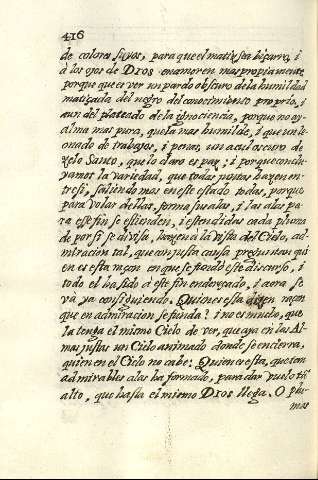 416
de colores suyos, para que el matiz sea bizarro, i
à los ojos de DIOS enamoren mas propiamente,
porque que es ver un pardo obscuro de la humildad
matizada del negro del conocimiento proprio, i
aun del plateado de la ignocencia, porque no ay
alma mas pura, que la mas humilde, i que un leonado
de trabajos, i penas, un azul oscuro de
zelo Santo, que lo claro es paz; i porque concluyamos
la variedad, que todas juntas hazen entre
si, saliendo mas en este estado todas, porque
para volar de las, forma sus alas, i las alas para
esse fin se estienden, i estendidas cada pluma
de por si se divisa, hazen à la vista del Cielo, admiracion
tal, que con justa causa preguntan quien
es esta razon en que se fundò este discurso, i
todo el ha sido à este fin enderezado, i aora se
và ya consiguiendo. Quien es esta dizen razon
que en admiracion se funda? i no es mucho, que
la tenga el mismo Cielo de ver, que aya en las Almas
justas un Cielo animado donde se encierra,
quien en el Cielo no cabe: Quien es esta, que tan
admirables alas ha formado, para dar vuelo tã
alto, que hasta el mismo DIOS llega. O plumas